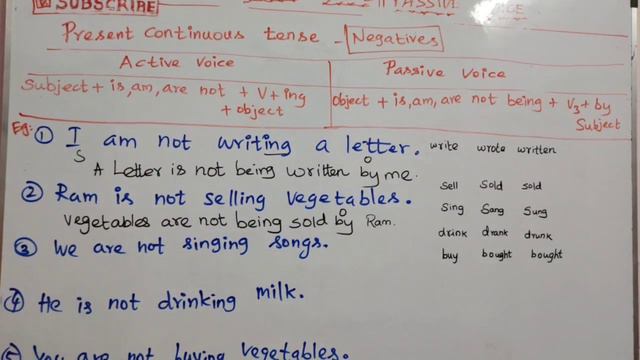 SUBSCRIBE PASSIVE VOICE
Present continuous tense - Negatives
Active voice
Passive voice
Subject + is, am, are not + V+ing + object
object + is, am, are not being + V3 + by Subject
Eg:- ① I am not writing a letter. write wrote written
S O
A Letter is not being written by me.
sell sold sold
② Ram is not selling vegetables.
O
Sing Sang Sung
Vegetables are not being sold by Ram.
drink drank drunk
③ We are not singing songs.
buy bought bought
④ He is not drinking milk.
⑤ You are not buying vegetables.